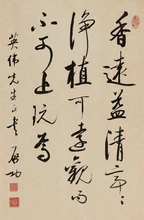 香远益清亭〻
净植可远观而
不可近玩焉
英伟先生正书 启功